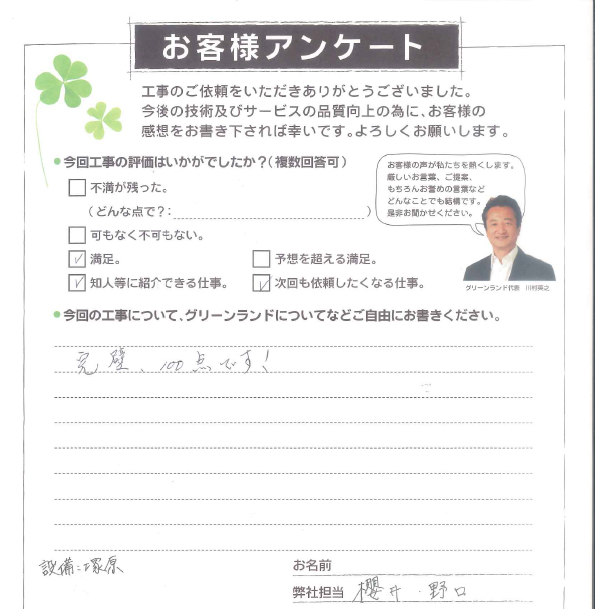 お客様アンケート
工事のご依頼をいただきありがとうございました。
今後の技術及びサービスの品質向上の為に、お客様の
感想をお書き下されば幸いです。よろしくお願いします。
●今回工事の評価はいかがでしたか?(複数回答可)
お客様の声が私たちを熱くします。
厳しいお言葉、ご提案、
もちろんお誉めの言葉など
どんなことでも結構です。
是非お聞かせください。
グリーンランド代表 川村
□不満が残った。
(どんな点で?: )
□可もなく不可もない。
☑満足。 □予想を超える満足。
☑知人等に紹介できる仕事。 ☑次回も依頼したくなる仕事。
●今回の工事について、グリーンランドについてなどご自由にお書きください。
完璧、100点です!
設備:塚原
お名前
弊社担当 櫻井・野口